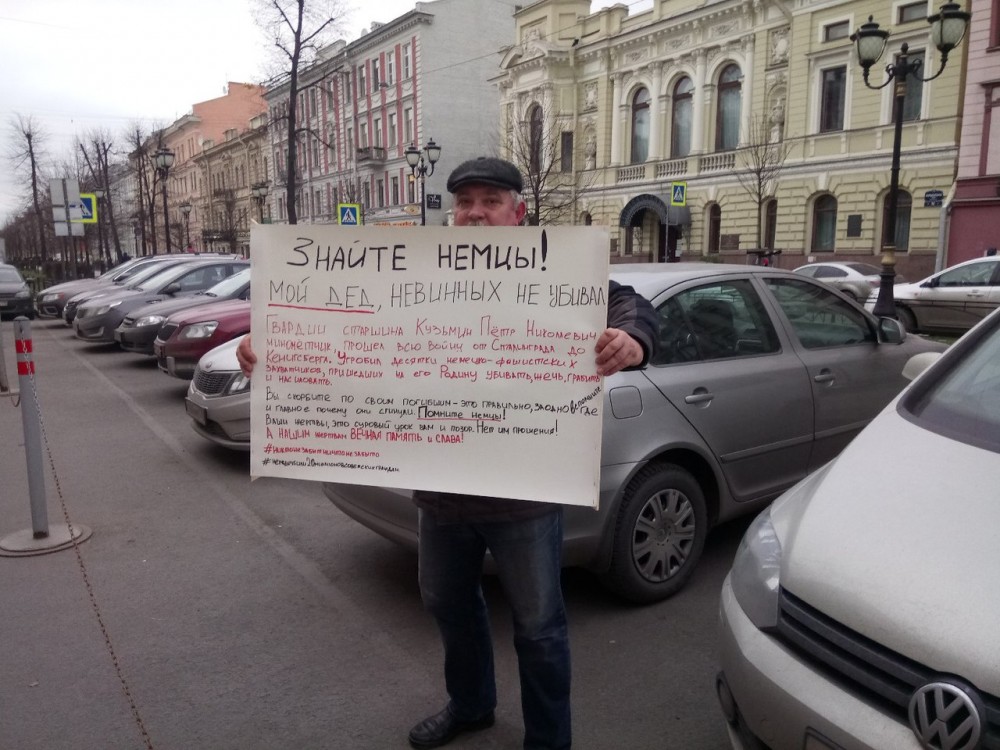 ЗНАЙТЕ НЕМЦЫ!
МОЙ ДЕД, НЕВИННЫХ НЕ УБИВАЛ
ГВАРДИИ СТАРШИНА КУЗЬМИН ПЁТР НИКОЛАЕВИЧ
МИНОМЁТЧИК, ПРОШЕЛ ВСЮ ВОЙНУ ОТ СТАЛИНГРАДА ДО
КЕНИГСБЕРГА. УГРОБИЛ ДЕСЯТКИ НЕМЕЦКО-ФАШИСТСКИХ
ЗАХВАТЧИКОВ, ПРИШЕДШИХ НА ЕГО РОДИНУ УБИВАТЬ, ЖЕЧЬ, ГРАБИТЬ
И НАСИЛОВАТЬ.
ВЫ СКОРБИТЕ ПО СВОИМ ПОГИБШИМ - ЭТО ПРАВИЛЬНО, ЗАОДНО ВСПОМНИТЕ ГДЕ
И ГЛАВНОЕ ПОЧЕМУ ОНИ СГИНУЛИ. ПОМНИТЕ НЕМЦЫ!
ВАШИ ЖЕРТВЫ, ЭТО СУРОВЫЙ УРОК ВАМ И ПОЗОР. НЕТ ИМ ПРОЩЕНИЯ!
А НАШИМ ЖЕРТВАМ ВЕЧНАЯ ПАМЯТЬ И СЛАВА!
#НИКТОНЕЗАБЫТИНИЧТОНЕЗАБЫТО